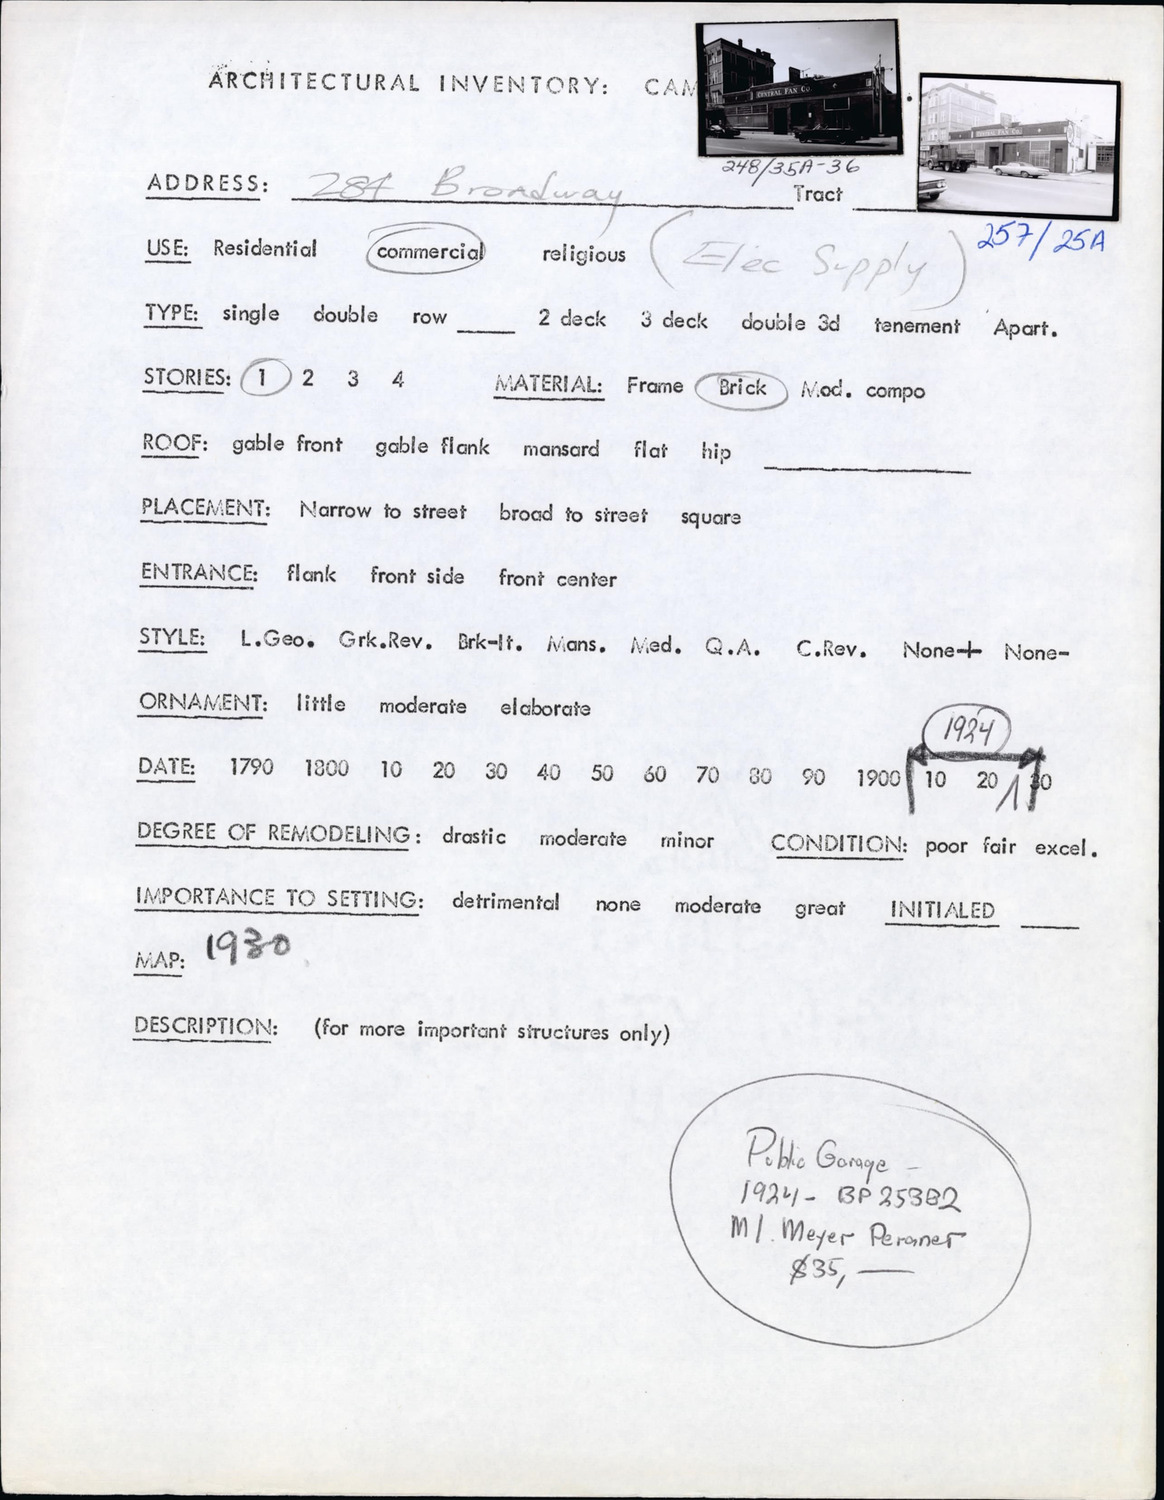 ARCHITECTURAL INVENTORY: CAM
CENTRAL FAN CO.
CENTRAL FAN CO.
248/35A-36
257/25A
ADDRESS: 284 Broadway Tract
USE: Residential commercial religious (Elec Supply)
TYPE: single double row ____ 2 deck 3 deck double 3d tenement Apart.
STORIES: 1 2 3 4 MATERIAL: Frame Brick Mod. compo
ROOF: gable front gable flank mansard flat hip
PLACEMENT: Narrow to street broad to street square
ENTRANCE: flank front side front center
STYLE: L.Geo. Grk.Rev. Brk-It. Mans. Med. Q.A. C.Rev. None+ None-
ORNAMENT: little moderate elaborate
1924
DATE: 1790 1800 10 20 30 40 50 60 70 80 90 1900 10 20 30
DEGREE OF REMODELING: drastic moderate minor CONDITION: poor fair excel.
IMPORTANCE TO SETTING: detrimental none moderate great INITIALED ____
MAP: 1930
DESCRIPTION: (for more important structures only)
Public Garage -
1924 - BP 25382
M/. Meyer
$35, —